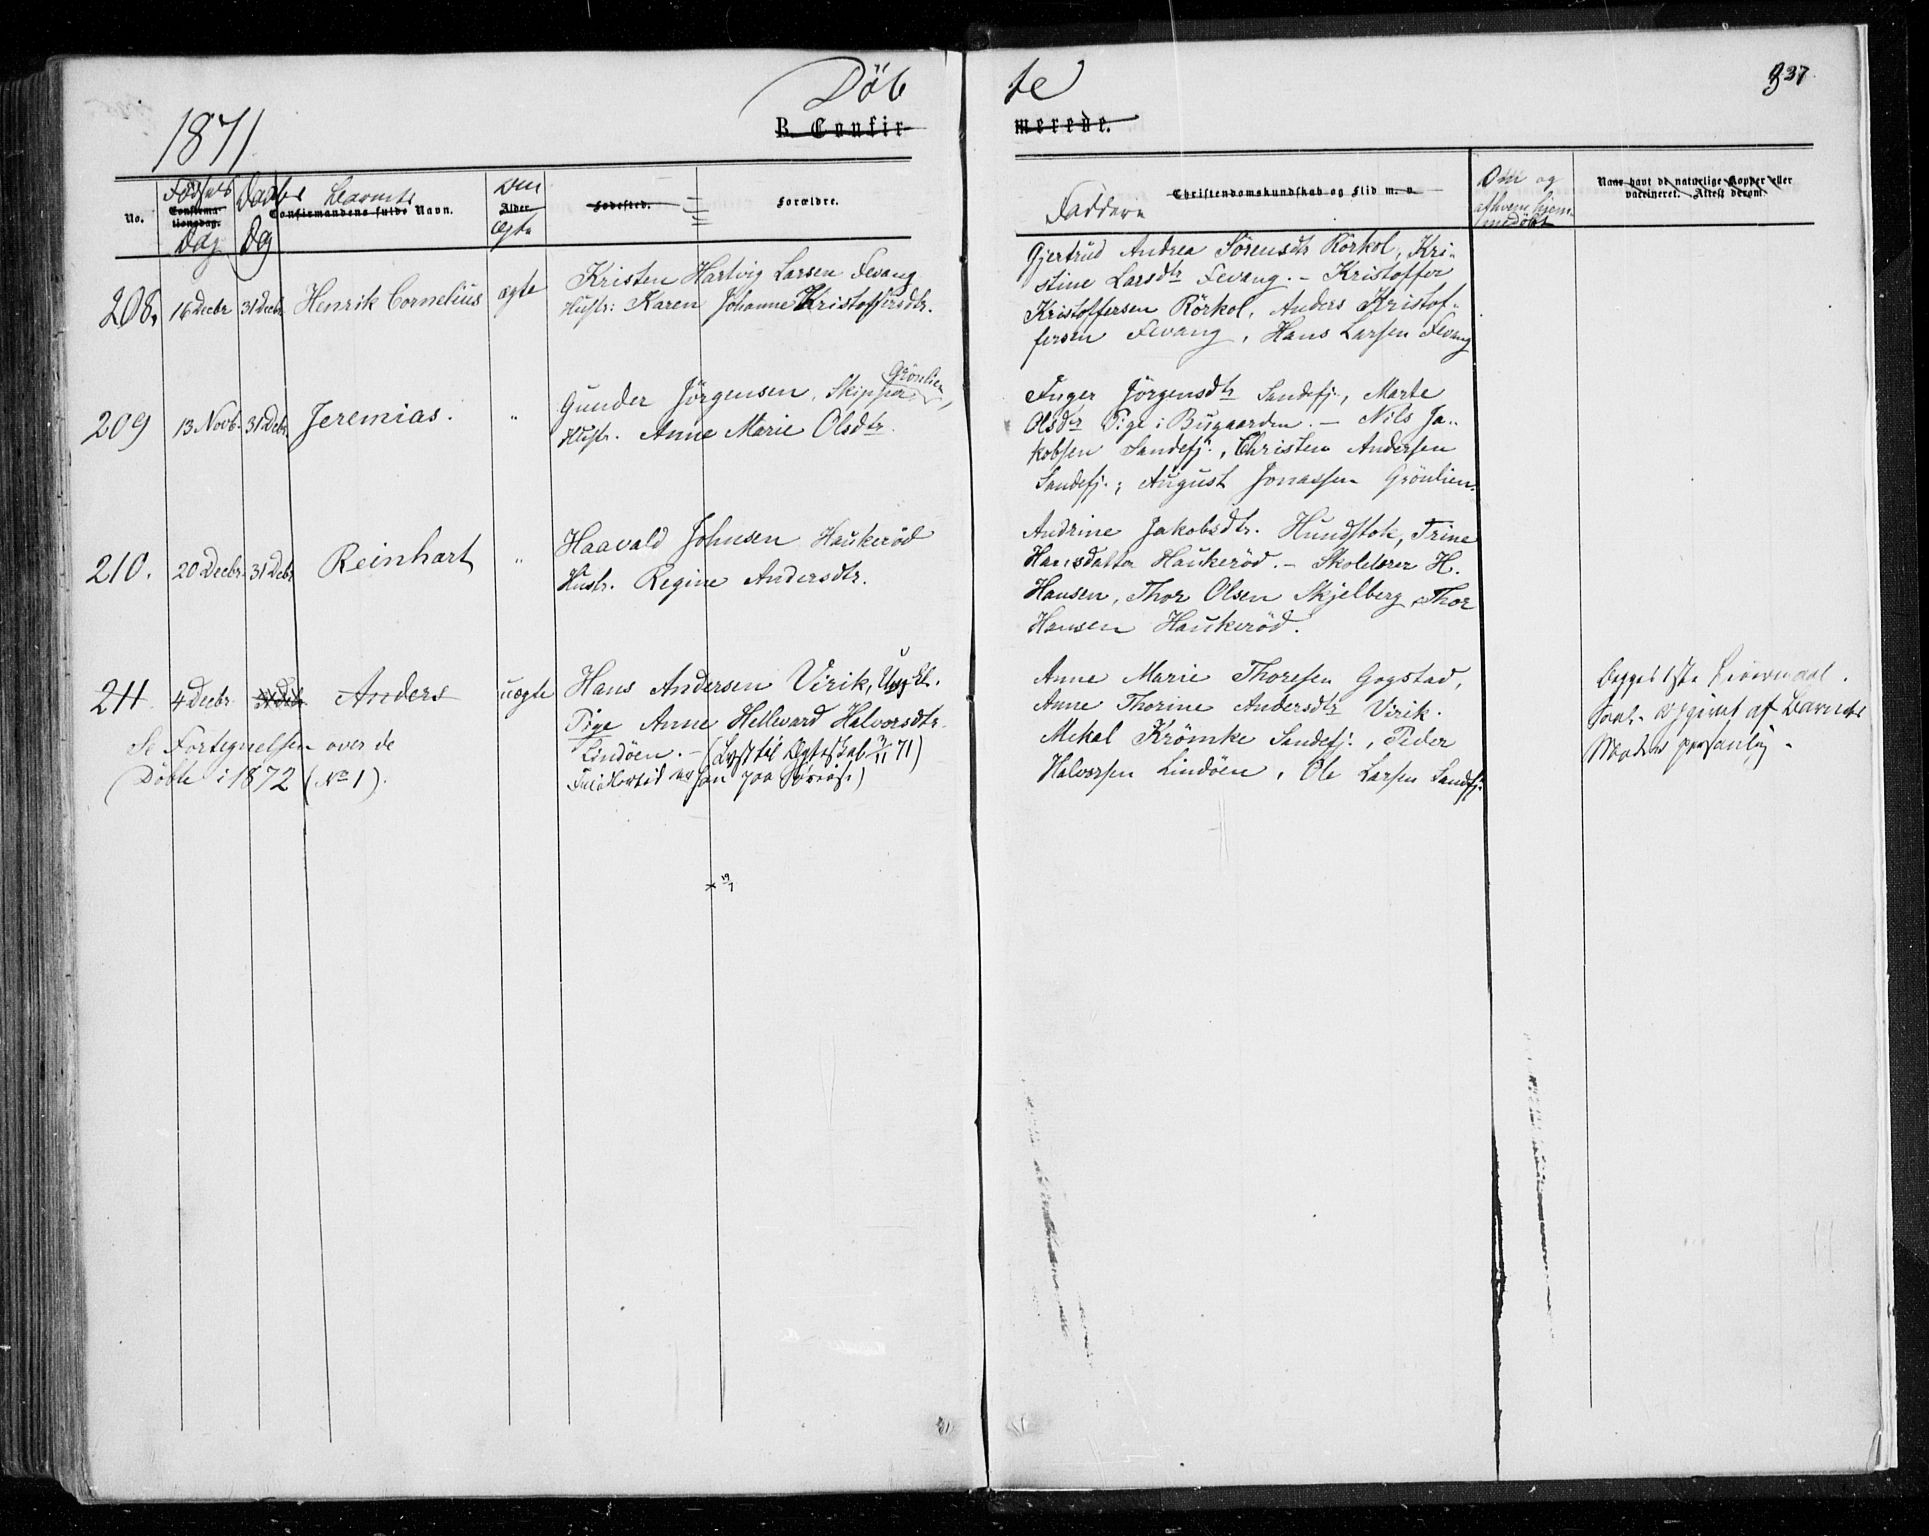 1871
Döb te
337
B. Confir- merede.
No.
Fødsels
Confirma-
tionsdag.
Dag
Daabs
Dag
Barnets
Confirmandens fulde Navn.
Om
Alder
Ægte
Fødested.
Forældre.
Faddere
Christendomskundskab og Flid m. v.
Om og
af hvem hjem-
medöbt
Naar havt de naturlige Kopper eller
vaccineret. Attest derom.
208. 16 Decbr 31 Decb. Henrik Cornelius ægte
Kristen Hartvig Larsen Fevang
Hustr: Karen Johanne Kristoffersdtr.
Gjertrud Andrea Sörensdtr Rörkol, Kri-
stine Larsdtr Fevang. - Kristoffer
Kristoffersen Rörkol, Anders Kristof-
fersen Fevang, Hans Larsen Fevang
209 13 Novb. 31 Debr. Jeremias. "
Gunder Jörgensen, Skipper, Grönlien
Hustr. Anne Marie Olsdtr.
Inger Jörgensdtr Sandefj., Marte
Olsdtr Pige i Bugaarden. - Nils Ja-
kobsen Sandefj., Christen Andersen
Sandefj.; August Jonassen Grönlien.
210. 20 Decbr. 31 Debr. Reinhart "
Haavald Johnsen Haukeröd
Hustr. Regine Andersdtr.
Andrine Jakobsdtr. Hundstok, Trine
Hansdatter Haukeröd. - Skolelærer H.
Hansen, Thor Olsen Skjelberg, Thor
Hansen Haukeröd.
211 4 Decbr 31 Deb. Anders uægte
Hans Andersen Virik, Ungkl.
Pige Anne Hellevard Halvorsdtr.
Lindöen. - (Lyst til Ægteskab 71)
Se Fortegnelsen over de
Döbte i 1872 (No 1).
Anne Marie Thoresen Gogstad,
Anne Thorine Andersdtr Virik.
Mekal Krömke Sandefj., Peder
Halvorsen Lindöen, Ole Larsen Sandfj.
Begges 1ste Leiermaal.
opgivet af Barnets
Moder personlig.
x 19/7